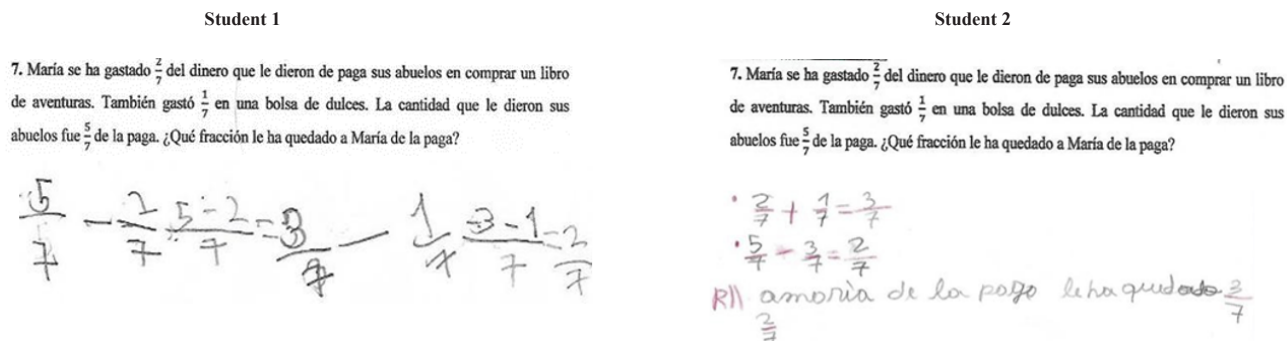 Student 1
7. María se ha gastado 2/7 del dinero que le dieron de paga sus abuelos en comprar un libro
de aventuras. También gastó 1/7 en una bolsa de dulces. La cantidad que le dieron sus
abuelos fue 5/7 de la paga. ¿Qué fracción le ha quedado a María de la paga?
5/7 - 2/7 = 5-2/7 = 3/7 - 1/7 = 3-1/7 = 2/7
Student 2
7. María se ha gastado 2/7 del dinero que le dieron de paga sus abuelos en comprar un libro
de aventuras. También gastó 1/7 en una bolsa de dulces. La cantidad que le dieron sus
abuelos fue 5/7 de la paga. ¿Qué fracción le ha quedado a María de la paga?
• 2/7 + 1/7 = 3/7
• 5/7 - 3/7 = 2/7
R\\ amoria de la pago le ha quedado 3/7
2/7